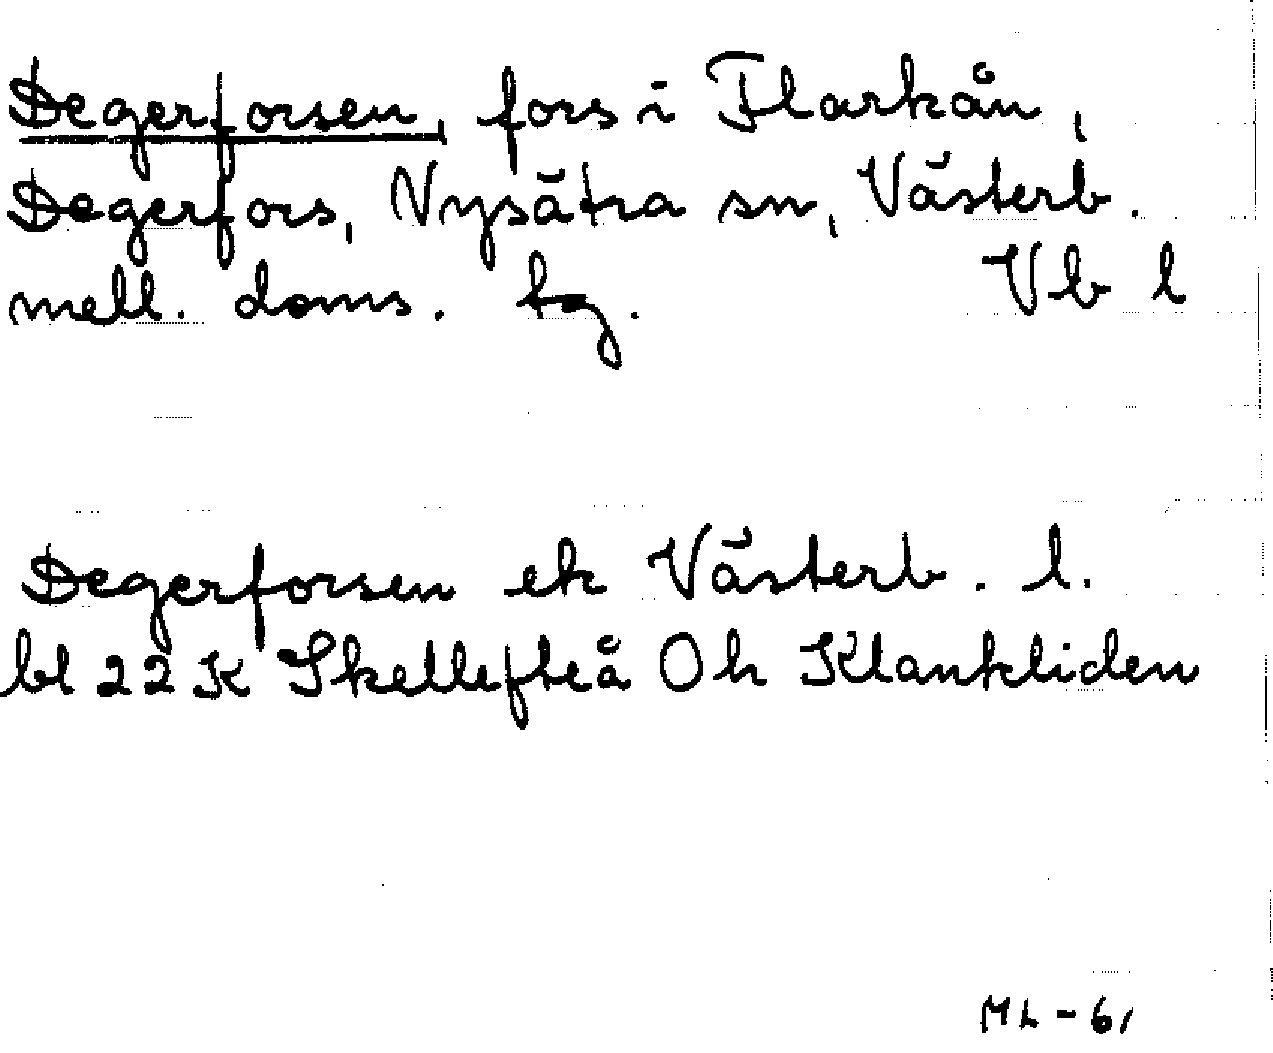 Degerforsen, fors i Flarkån,
Degerfors, Nysätra sn, Västerb.
mell. doms. tg. Vb l
Degerforsen ek Västerb. l.
bl 22 K Skellefteå Oh Klankliden
ML-61